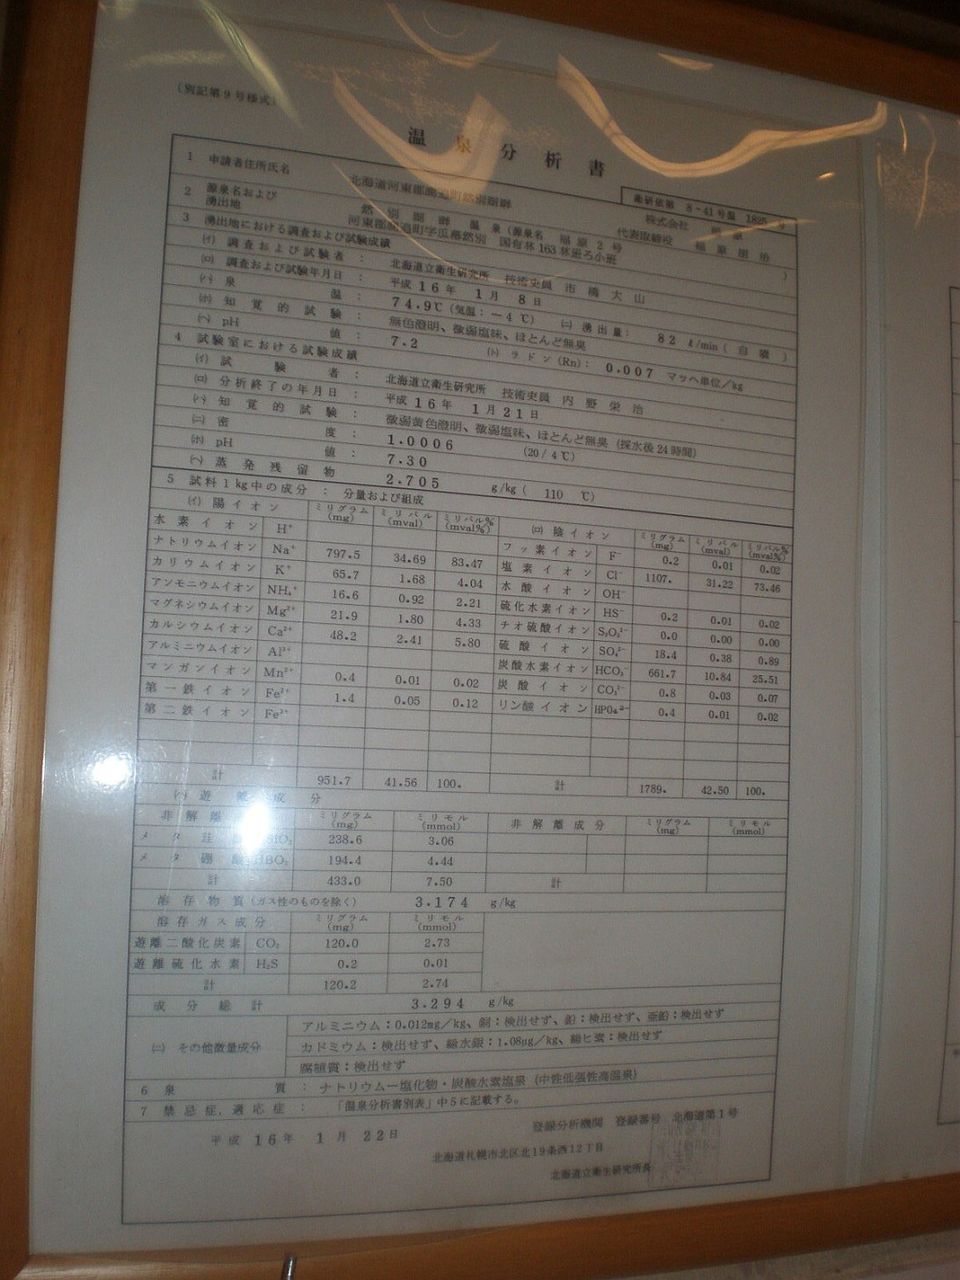 (別記第9号様式)
温泉分析書
衛研依第 8-41号温 1825 号
1 申請者住所氏名 北海道河東郡鹿追町然別湖畔
株式会社 福原
代表取締役 福原
2 源泉名および湧出地 然別湖畔温泉(源泉名 福原2号)
河東郡鹿追町字瓜幕然別 国有林163林班ろ小班
3 湧出地における調査および試験成績
(イ) 調査および試験者 : 北海道立衛生研究所 技術吏員 市橋大山
(ロ) 調査および試験年月日 : 平成16年 1月 8日
(ハ) 泉温 : 74.9℃(気温:-4℃) (ニ) 湧出量: 82 ℓ/min(自噴)
(ホ) 知覚的試験 : 無色澄明、微弱塩味、ほとんど無臭
(ヘ) pH値 : 7.2 (ト) ラドン(Rn): 0.007 マッヘ単位/kg
4 試験室における試験成績
(イ) 試験者 : 北海道立衛生研究所 技術吏員 内野栄治
(ロ) 分析終了の年月日 : 平成16年 1月21日
(ハ) 知覚的試験 : 微弱黄色澄明、微弱塩味、ほとんど無臭(採水後24時間)
(ニ) 密度 : 1.0006 (20/4℃)
(ホ) pH値 : 7.30
(ヘ) 蒸発残留物 : 2.705 g/kg( 110 ℃)
5 試料1kg中の成分 : 分量および組成
(イ) 陽イオン ミリグラム(mg) ミリバル(mval) ミリバル%(mval%) (ロ) 陰イオン ミリグラム(mg) ミリバル(mval) ミリバル%(mval%)
水素イオン H⁺ フッ素イオン F⁻ 0.2 0.01 0.02
ナトリウムイオン Na⁺ 797.5 34.69 83.47 塩素イオン Cl⁻ 1107. 31.22 73.46
カリウムイオン K⁺ 65.7 1.68 4.04 水酸イオン OH⁻
アンモニウムイオン NH₄⁺ 16.6 0.92 2.21 硫化水素イオン HS⁻ 0.2 0.01 0.02
マグネシウムイオン Mg²⁺ 21.9 1.80 4.33 チオ硫酸イオン S₂O₃²⁻ 0.0 0.00 0.00
カルシウムイオン Ca²⁺ 48.2 2.41 5.80 硫酸イオン SO₄²⁻ 18.4 0.38 0.89
アルミニウムイオン Al³⁺ 炭酸水素イオン HCO₃⁻ 661.7 10.84 25.51
マンガンイオン Mn²⁺ 0.4 0.01 0.02 炭酸イオン CO₃²⁻ 0.8 0.03 0.07
第一鉄イオン Fe²⁺ 1.4 0.05 0.12 リン酸イオン HPO₄²⁻ 0.4 0.01 0.02
第二鉄イオン Fe³⁺
計 951.7 41.56 100. 計 1789. 42.50 100.
(ハ) 遊離成分
非解離 ミリグラム(mg) ミリモル(mmol) 非解離成分 ミリグラム(mg) ミリモル(mmol)
メタ珪 238.6 3.06
メタ硼 HBO₂ 194.4 4.44
計 433.0 7.50 計
溶存物質(ガス性のものを除く) 3.174 g/kg
溶存ガス成分 ミリグラム(mg) ミリモル(mmol)
遊離二酸化炭素 CO₂ 120.0 2.73
遊離硫化水素 H₂S 0.2 0.01
計 120.2 2.74
成分総計 3.294 g/kg
(ニ) その他微量成分 アルミニウム:0.012mg/kg、銅:検出せず、鉛:検出せず、亜鉛:検出せず
カドミウム:検出せず、総水銀:1.08μg/kg、総ヒ素:検出せず
腐植質:検出せず
6 泉質 : ナトリウム-塩化物・炭酸水素塩泉 (中性低張性高温泉)
7 禁忌症、適応症 : 「温泉分析書別表」中5に記載する。
平成16年 1月 22日
登録分析機関 登録番号 北海道第1号
北海道札幌市北区北19条西12丁目
北海道立衛生研究所長